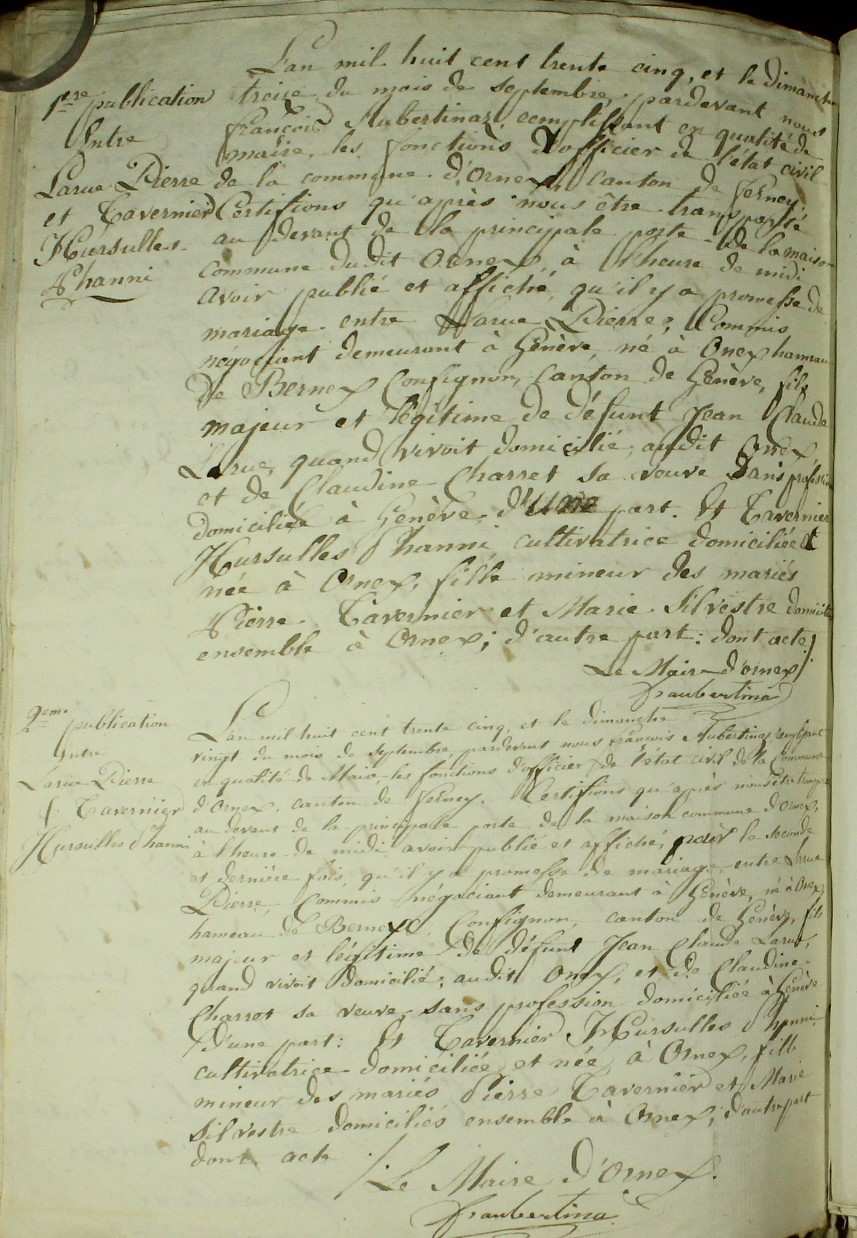 1ere publication
Entre
Larue Pierre
et Tavernier
Hursulles
Phanni
L'an mil huit cent trente cinq, et le dimanche
treize du mois de Septembre, pardevant nous
françois Aubertinaz, remplissant en qualité de
maire, les fonctions d'officier de l'état civil
de la commune d'Ornex, canton de ferney,
Certifions qu'après nous être transporté
au devant de la principale porte de la maison
commune dudit Ornex, à l'heure de midi
avoir publié et affiché, qu'il y a promesse de
mariage entre Larue Pierre, Commis
negociant demeurant à Genève, né à Onex hameau
de Bernex Confignon, Canton de Genève, fils
majeur et légitime de défunt Jean Claude
Larue, quand vivoit domicilié audit Onex,
et de Claudine Charrot sa veuve sans profession
domiciliée à Genève, d'une part. Et Tavernier
Hursulles Phanni, cultivatrice domiciliée et
née à Ornex, fille mineur des mariés
Pierre Tavernier et Marie Silvestre domiciliés
ensemble à Ornex; d'autre part: dont acte
Le Maire d'ornex
fraubertina
2eme publication
Entre
Larue Pierre
et Tavernier
Hursulles Phanni
L'an mil huit cent trente cinq, et le dimanche
vingt du mois de Septembre, pardevant nous françois Aubertinaz remplissant
en qualité de Maire les fonctions d'officier de l'état civil de la Commune
d'Ornex, canton de ferney. Certifions qu'après nous être transporté
au devant de la principale porte de la maison commune d'Ornex,
à l'heure de midi avoir publié et affiché, pour la seconde
et dernière fois, qu'il y a promesse de mariage entre Larue
Pierre, Commis négociant demeurant à Genève, né à Onex,
hameau de Bernex Confignon, canton de Genève, fils
majeur et légitime de défunt Jean Claude Larue,
quand vivoit domicilié audit Onex, et de Claudine
Charrot sa veuve sans profession domiciliée à Genève
d'une part: Et Tavernier Hursulles Phanni,
cultivatrice domiciliée et née à Ornex, fille
mineur des mariés Pierre Tavernier et Marie
Silvestre domiciliés ensemble à Ornex; d'autre part
dont acte
Le Maire d'Ornex.
fraubertina